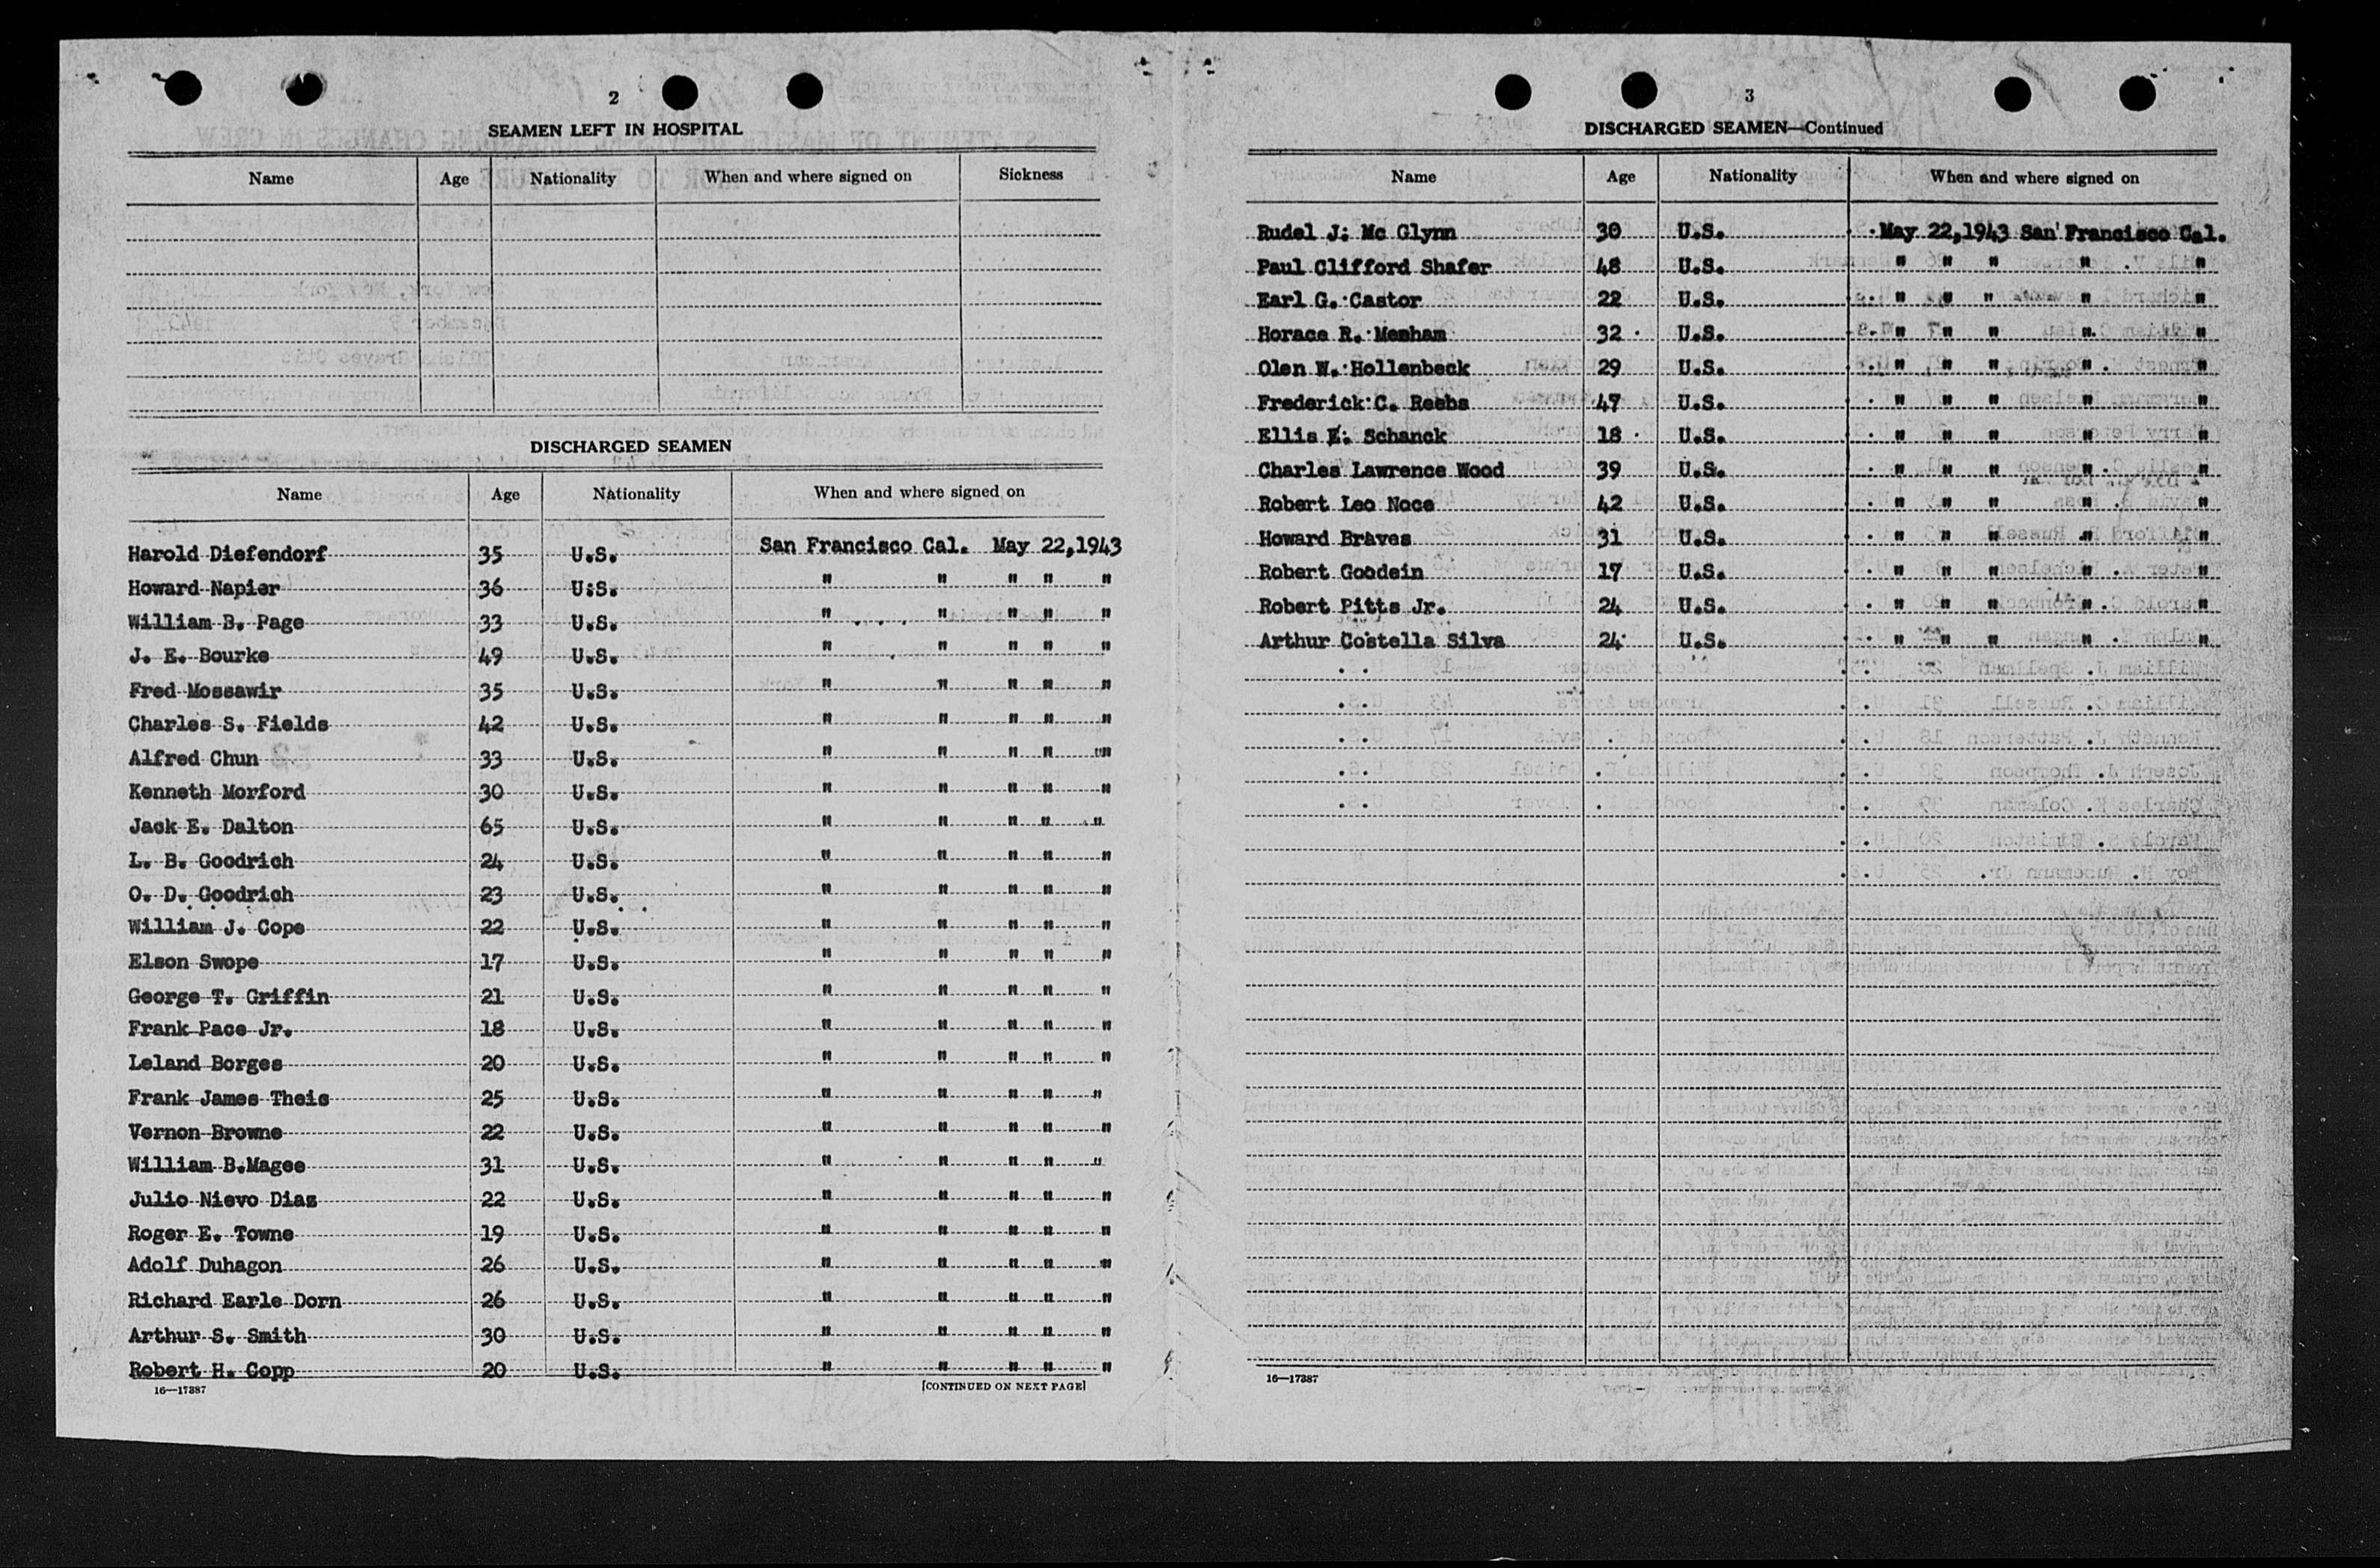 2
SEAMEN LEFT IN HOSPITAL
Name Age Nationality When and where signed on Sickness
DISCHARGED SEAMEN
Name Age Nationality When and where signed on
Harold Diefendorf 35 U.S. San Francisco Cal. May 22,1943
Howard Napier 36 U.S. " " " " "
William B. Page 33 U.S. " " " " "
J. E. Bourke 49 U.S. " " " " "
Fred Mossawir 35 U.S. " " " " "
Charles S. Fields 42 U.S. " " " " "
Alfred Chun 33 U.S. " " " " "
Kenneth Morford 30 U.S. " " " " "
Jack E. Dalton 65 U.S. " " " " "
L. B. Goodrich 24 U.S. " " " " "
O. D. Goodrich 23 U.S. " " " " "
William J. Cope 22 U.S. " " " " "
Elson Swope 17 U.S. " " " " "
George T. Griffin 21 U.S. " " " " "
Frank Pace Jr. 18 U.S. " " " " "
Leland Borges 20 U.S. " " " " "
Frank James Theis 25 U.S. " " " " "
Vernon Browne 22 U.S. " " " " "
William B.Magee 31 U.S. " " " " "
Julio Nievo Diaz 22 U.S. " " " " "
Roger E. Towne 19 U.S. " " " " "
Adolf Duhagon 26 U.S. " " " " "
Richard Earle Dorn 26 U.S. " " " " "
Arthur S. Smith 30 U.S. " " " " "
Robert H. Copp 20 U.S. " " " " "
16—17387 [CONTINUED ON NEXT PAGE]
3
DISCHARGED SEAMEN—Continued
Name Age Nationality When and where signed on
Rudel J. Mc Glynn 30 U.S. May 22,1943 San Francisco Cal.
Paul Clifford Shafer 48 U.S. " " " " "
Earl G. Castor 22 U.S. " " " " "
Horace R. Memham 32 U.S. " " " " "
Olen W. Hollenbeck 29 U.S. " " " " "
Frederick C. Reebs 47 U.S. " " " " "
Ellis E. Schanck 18 U.S. " " " " "
Charles Lawrence Wood 39 U.S. " " " " "
Robert Leo Noce 42 U.S. " " " " "
Howard Braves 31 U.S. " " " " "
Robert Goodein 17 U.S. " " " " "
Robert Pitts Jr. 24 U.S. " " " " "
Arthur Costella Silva 24 U.S. " " " " "
16—17387